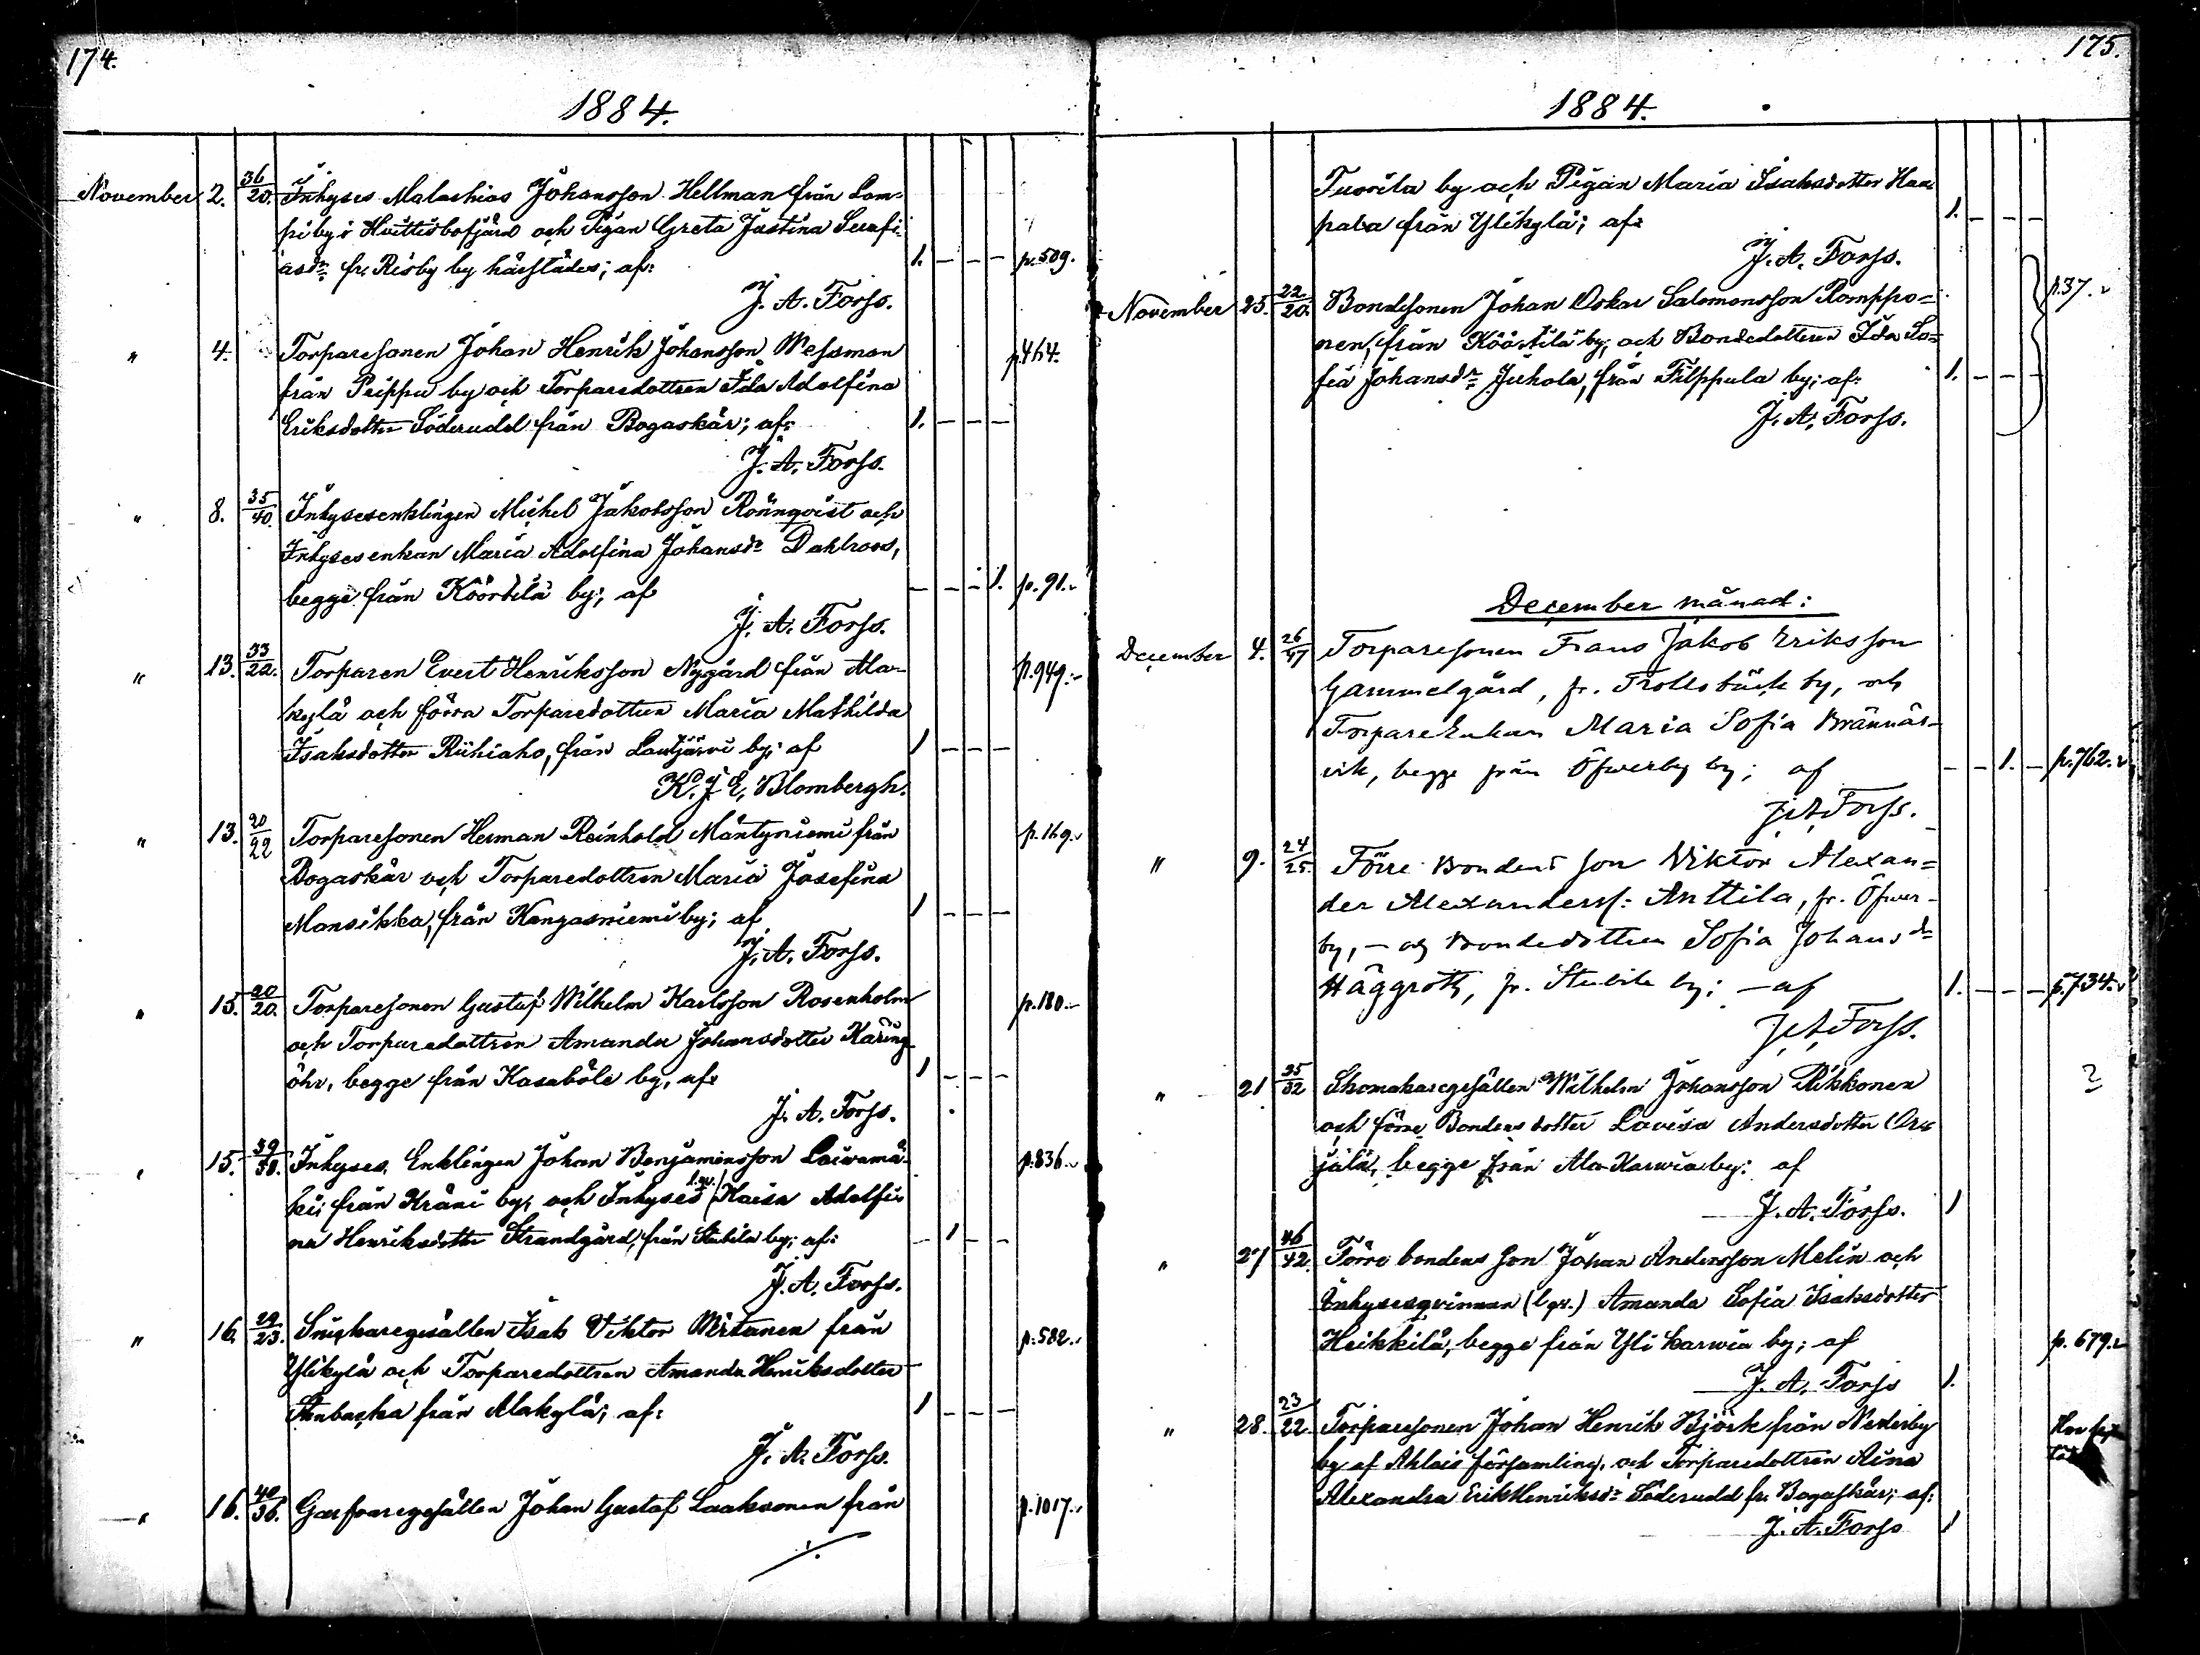 174.
1884.
November 2. 36/20. Inhyses Malachias Johansson Hellman från Lam-
pi by i Hvittisbofjärd och Pigan Greta Justina Serafi-
asdr fr. Risby by härstädes; af: 1. – – – p. 509.
J. A. Forss.
" 4. Torparesonen Johan Henrik Johansson Wessman p. 464.
från Prippu by och Torparedottren Ida Adolfina
Eriksdotter Söderudd från Bogaskär; af: 1. – – –
J. A. Forss.
" 8. 35/40. Inhysesenklingen Michel Jakobsson Rönnqvist och
Inhysesenkan Maria Adolfina Johansdr Dahlroos,
begge från Köörtilä by; af – – – 1. p. 91.
J. A. Forss.
" 13. 33/22. Torparen Evert Henriksson Nygård från Ala- p. 949.
kylä och förra Torparedottren Maria Mathilda
Isaksdotter Riihiaho, från Lautjärvi by; af 1 – – –
K. J. E. Blombergh.
" 13. 20/22 Torparesonen Herman Reinhold Mäntyniemi från p. 169.
Bogaskär och Torparedottren Maria Josefina
Mansikka, från Kangasniemi by; af 1 – – –
J. A. Forss.
" 15. 20/20. Torparesonen Gustaf Wilhelm Karlsson Rosenholm p. 180.
och Torparedottren Amanda Johansdotter Käring-
öhr, begge från Kasaböle by, af: 1 – – –
J. A. Forss.
" 15. 39/30. Inhyses Enklingen Johan Benjaminsson Laivamä- p. 836.
ki, från Kråni by, och Inhyses l.qv. Kaisa Adolfi-
na Henriksdotter Strandgård, från Stubila by; af: – 1 – –
J. A. Forss.
" 16. 29/23. Snickaregesällen Isak Viktor Wirtanen från p. 582.
Ylikylä och Torparedottren Amanda Henriksdotter
Stenbacka från Alakylä; af: 1 – – –
J. A. Forss.
" 16. 40/36. Garfvaregesällen Johan Gustaf Laaksonen från p. 1017.
./.
175.
1884.
Tuorila by och Pigan Maria Isaksdotter Haa-
pala från Ylikylä; af: 1. – – –
J. A. Forss.
November 25. 22/20. Bondesonen Johan Oskar Salomonsson Romppa- p. 37.
nen, från Köörtilä by, och Bondedottren Ida So-
fia Johansdr Juhola, från Filppula by; af: 1. – – –
J. A. Forss.
December månad:
December 4. 26/47 Torparesonen Frans Jakob Eriksson
Gammelgård, fr. Trollsbäck by, och
TorpareEnkan Maria Sofia Brännäs-
vik, begge från Öfwerby by; af – – 1. – p. 762.
J. A. Forss.
" 9. 24/25. Förre Bondens son Viktor Alexan=
der Alexanderss: Anttila, fr. Öfwer-
by, – och Bondedottren Sofia Johansdr
Häggroth, fr. Stubila by; – af 1. – – – p. 734.
J. A. Forss.
" 21 35/32 Skomakaregesällen Wilhelm Johansson Rikkonen ?
och förre Bondens dotter Lovisa Andersdotter Ora-
jälä, begge från Ala-Karwia by: af
J. A. Forss. 1
" 27 46/42. Förre bondens son Johan Andersson Melin och
Inhysesqvinnan (l. qv.) Amanda Sofia Isaksdotter
Heikkilä, begge från Yli Karwia by; af p. 679.
J. A. Forss 1.
" 28. 23/22 Torparesonen Johan Henrik Björk från Nederby
by af Ahlais församling, och Torparedottren Aina
Alexandra ErikHenriksdr Söderudd fr. Bogaskär; af:
J. A. Forss 1